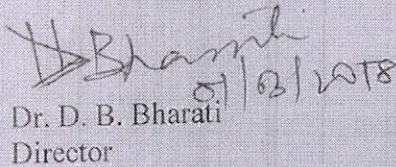 DBBharati
01/03/2018
Dr. D. B. Bharati
Director